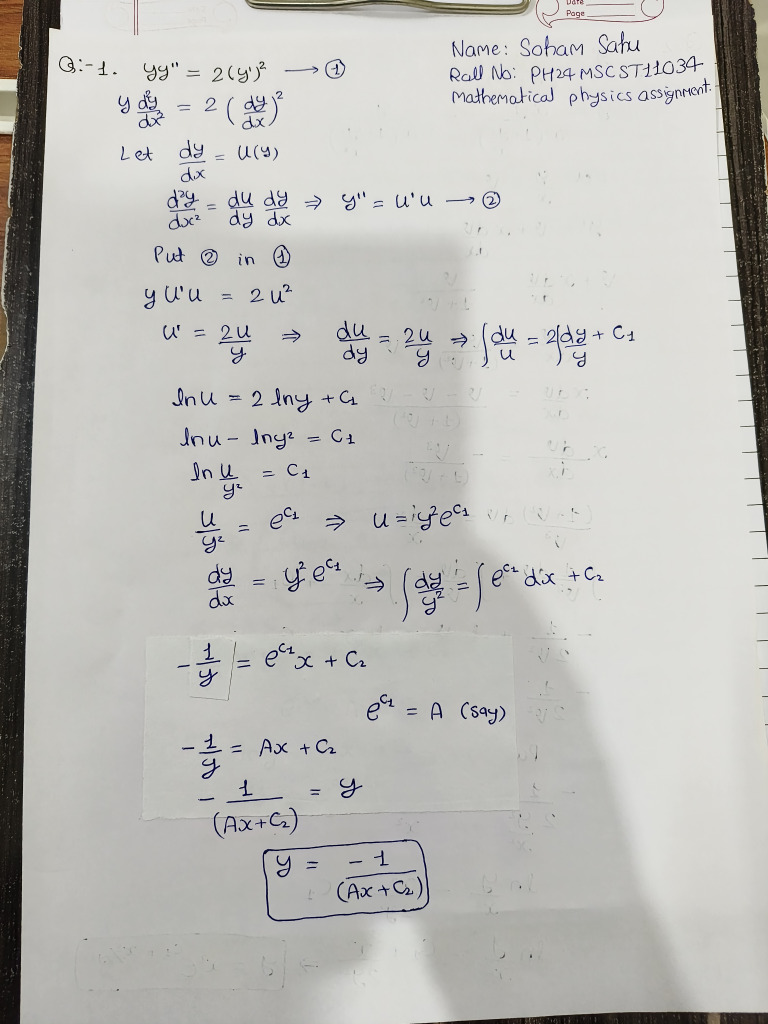 Date
Page
Name: Soham Sahu
Roll No: PH24MSCST11034
Mathematical physics assignment.
Q:-1. yy" = 2(y')² → ①
y d²y/dx² = 2 (dy/dx)²
Let dy/dx = u(y)
d²y/dx² = du/dy dy/dx ⇒ y" = u'u → ②
Put ② in ①
y u'u = 2u²
u' = 2u/y ⇒ du/dy = 2u/y ⇒ ∫du/u = 2∫dy/y + C₁
ln u = 2 ln y + C₁
ln u - ln y² = C₁
ln u/y² = C₁
u/y² = e^C₁ ⇒ u = y² e^C₁
dy/dx = y² e^C₁ ⇒ ∫dy/y² = ∫e^C₁ dx + C₂
-1/y = e^C₁ x + C₂
e^C₁ = A (say)
-1/y = Ax + C₂
-1/(Ax+C₂) = y
y = -1/(Ax+C₂)